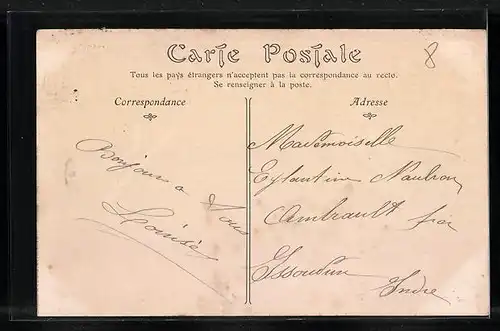 Carte Postale
8
Tous les pays étrangers n'acceptent pas la correspondance au recto.
Se renseigner à la poste.
Correspondance
Adresse
Bonjour a Vous
Louise
Mademoiselle
Eglantine
Ambrault
Issoudun
Indre